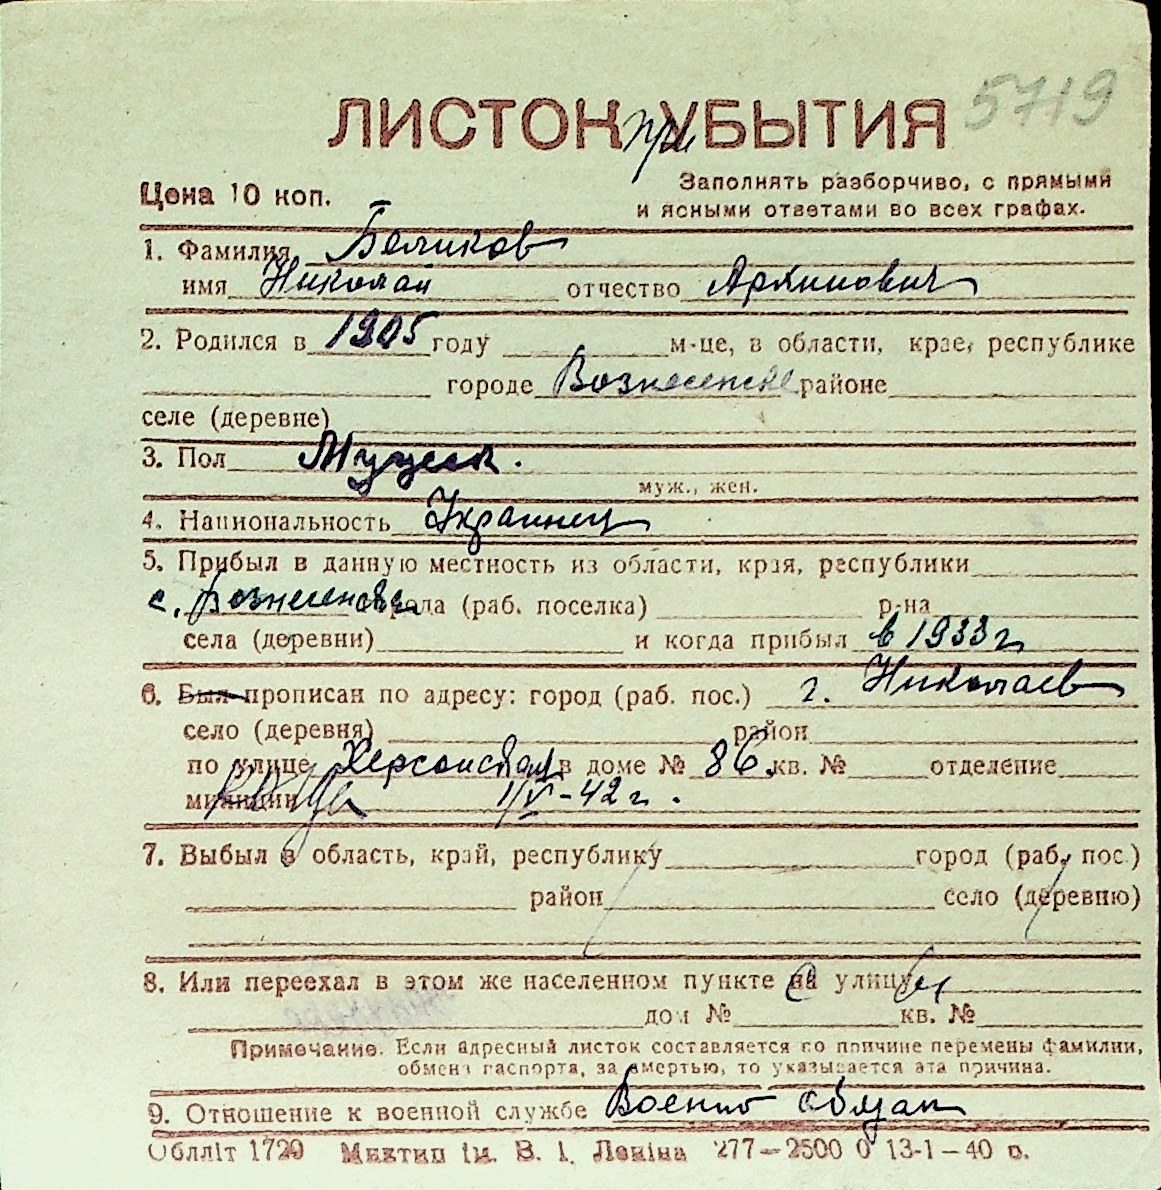 5719
ЛИСТОК при УБЫТИЯ
Цена 10 коп.
Заполнять разборчиво, с прямыми
и ясными ответами во всех графах.
1. Фамилия Беликов
имя Николай отчество Архипович
2. Родился в 1905 году м-це, в области, крае, республике
городе Вознесенске районе
селе (деревне)
3. Пол Мужск.
муж., жен.
4. Национальность Украинец
5. Прибыл в данную местность из области, края, республики
с. города (раб. поселка) р-на
села (деревни) и когда прибыл в 1933 г
6. Был прописан по адресу: город (раб. пос.) г. Николаев
село (деревня) район
по улице Херсонская в доме № 86 кв. № отделение
милиции 1/V-42 г.
7. Выбыл в область, край, республику город (раб. пос.)
район село (деревню)
8. Или переехал в этом же населенном пункте на улицу
дом № кв. №
Примечание. Если адресный листок составляется по причине перемены фамилии,
обмена паспорта, за смертью, то указывается эта причина.
9. Отношение к военной службе Военно обязан
Облліт 1720 Миктип ім. В. І. Леніна 277—2500 0 13-1-40 р.